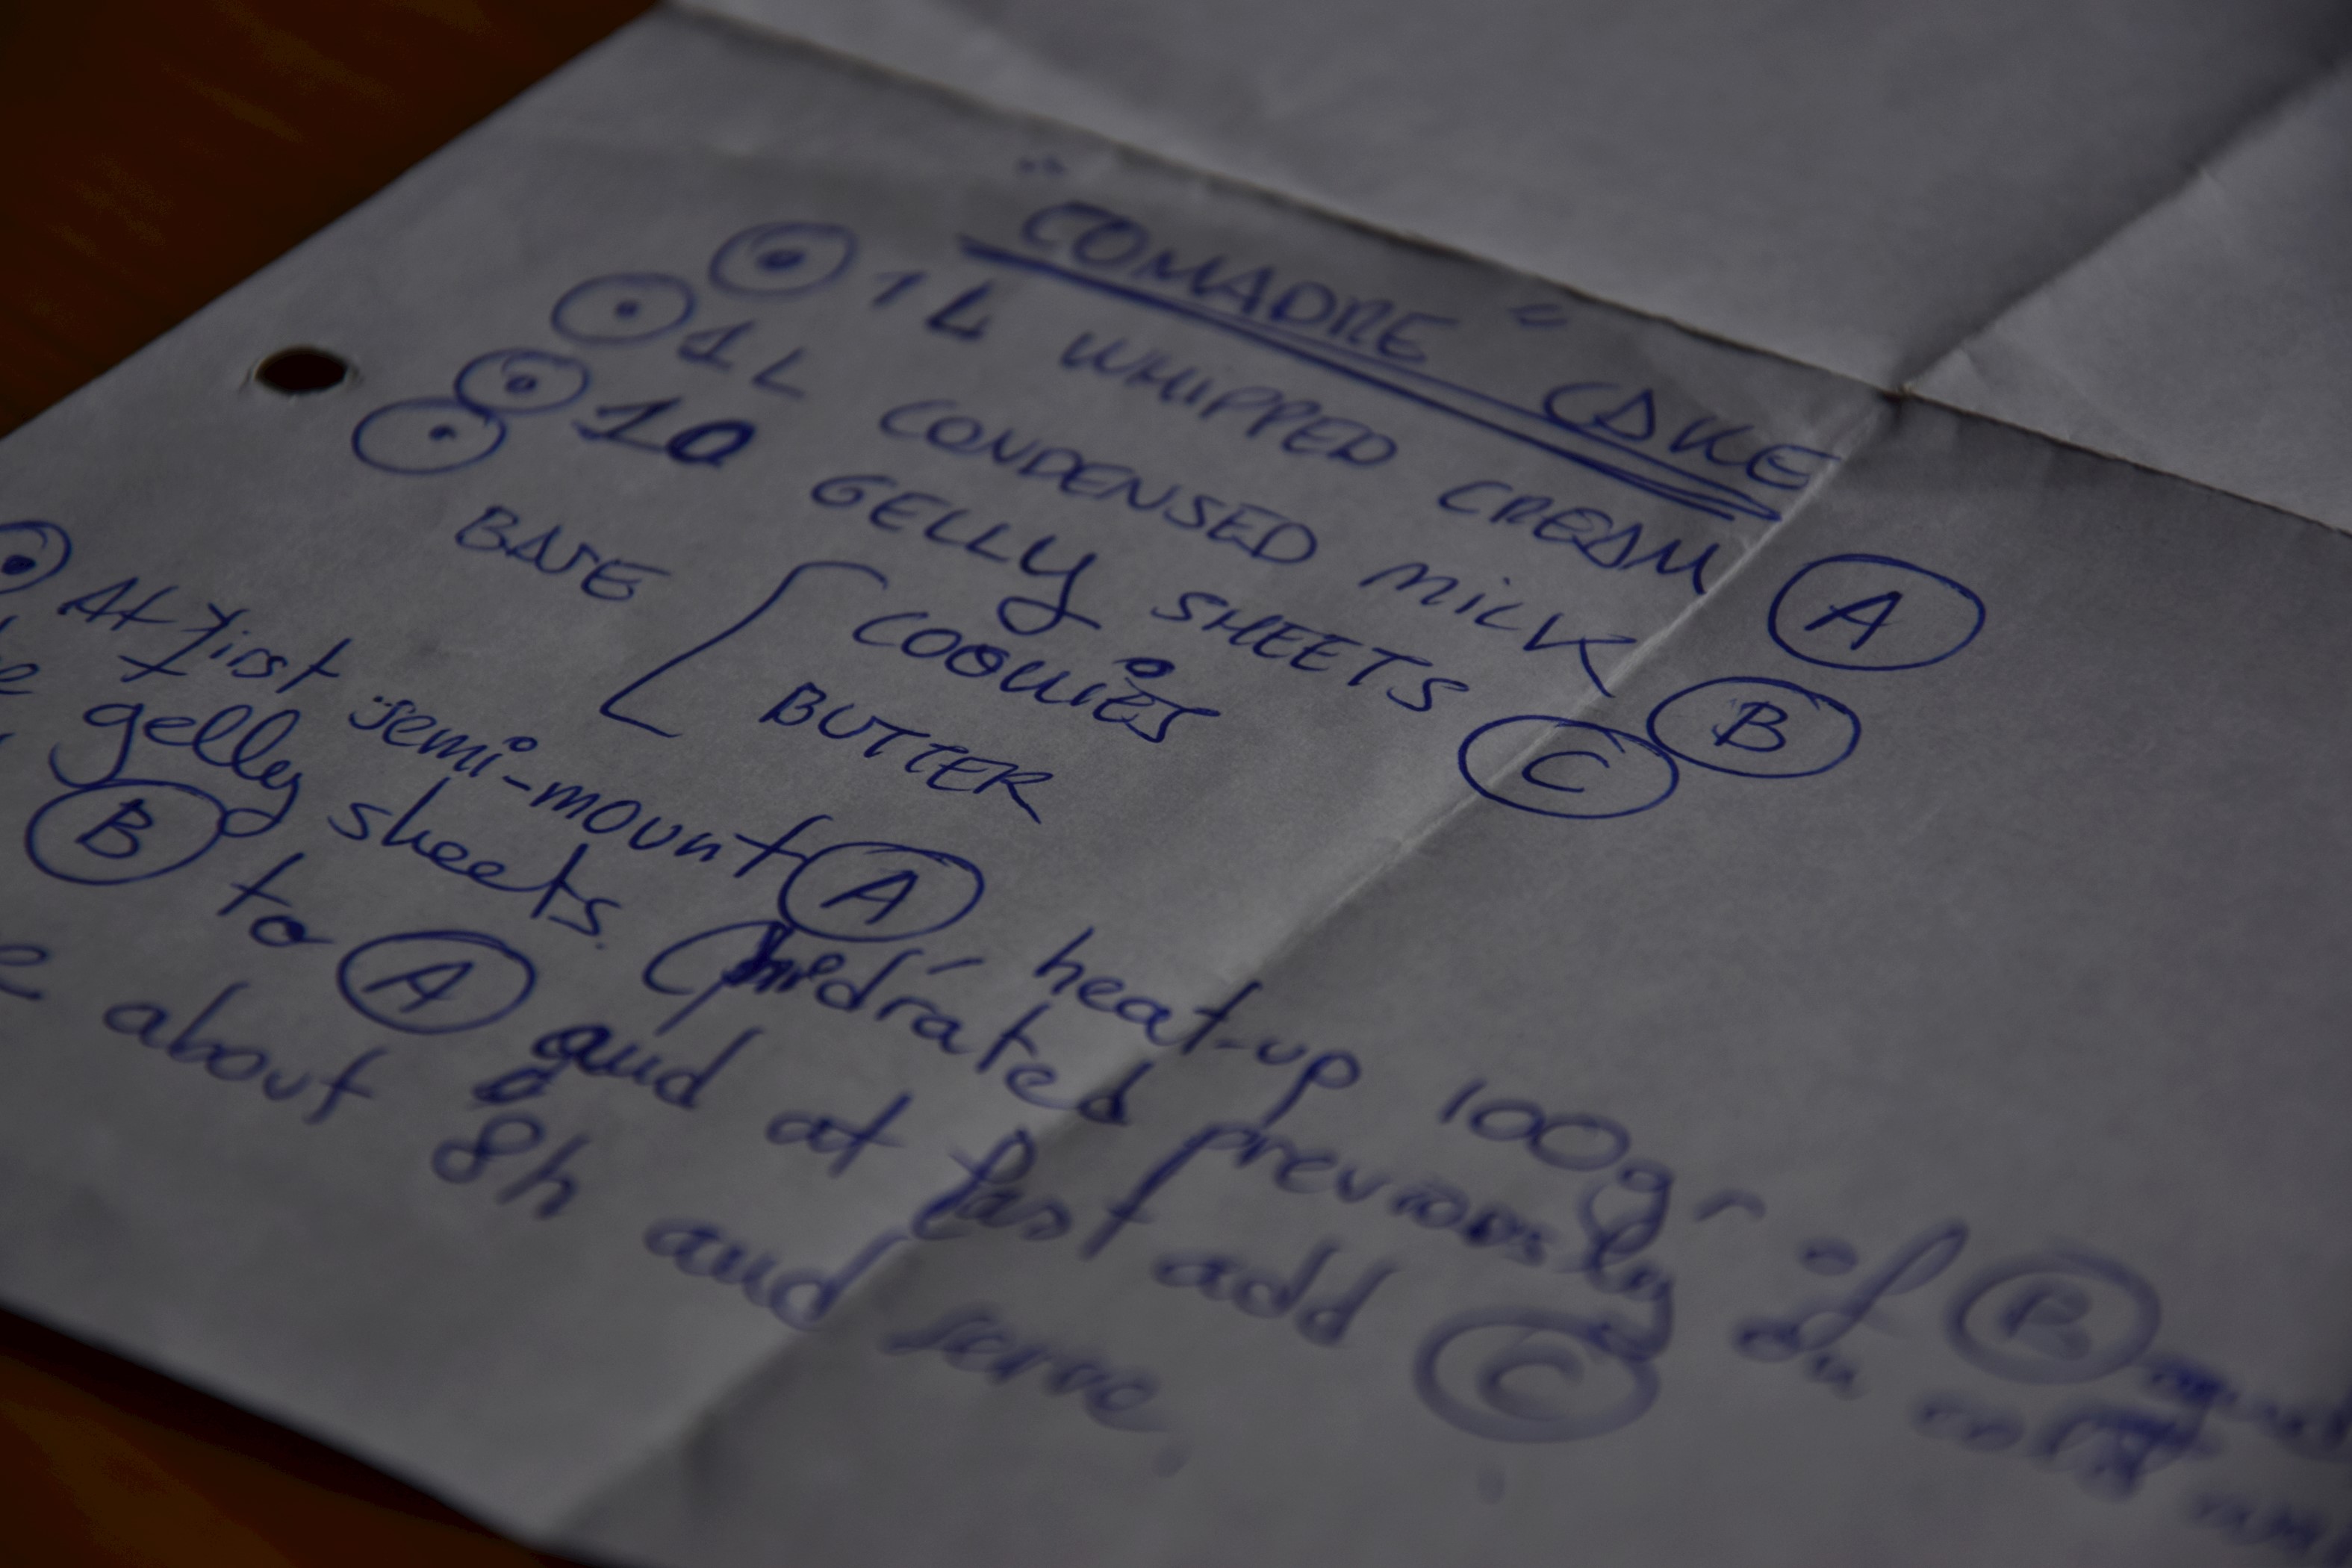 "COMADRE" CAKE
1L WHIPPED CREAM A
1L CONDENSED MILK B
10 GELLY SHEETS C
BASE COOKIES
BUTTER
At first semi-mount A, heat-up 100gr of B
gelly sheets. (hidrated previously in cold
B to A and at last add C.
about 8h and serve.